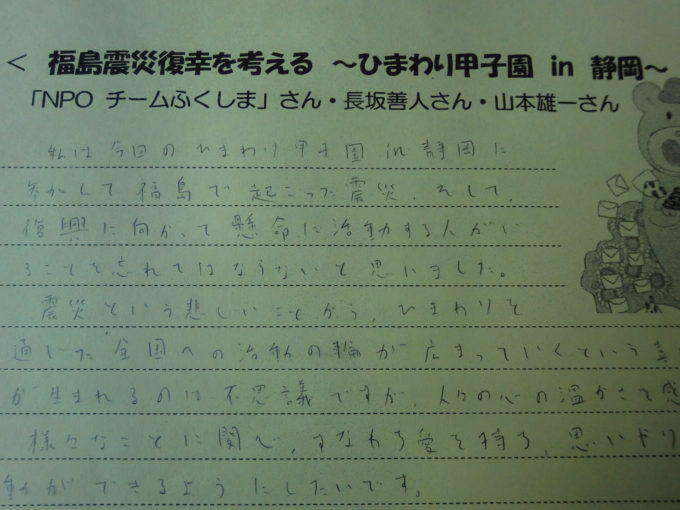 < 福島震災復幸を考える ～ひまわり甲子園 in 静岡～
「NPO チームふくしま」さん・長坂善人さん・山本雄一さん
私は今回のひまわり甲子園in静岡に
参加して福島で起こった震災、そして、
復興に向かって懸命に活動する人がい
ることを忘れてはならないと思いました。
震災という悲しいことから、ひまわりを
通じた全国への活動の輪が広まっていくという
が生まれるのは不思議ですが、人々の心の温かさを感
様々なことに関心、すなわち愛を持ち、思いやり
動ができるようにしたいです。